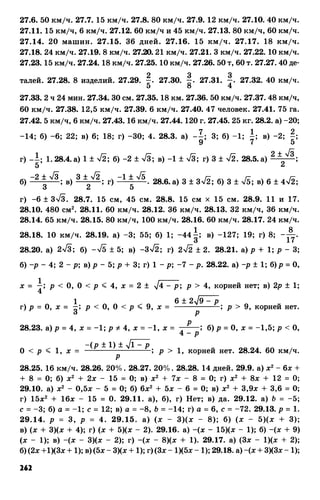 27.6. 50 км/ч. 27.7. 15 км/ч. 27.8. 80 км/ч. 27.9. 12 км/ч. 27.10. 40 км/ч.
27.11. 15 км/ч, 6 км/ч. 27.12. 60 км/ч и 45 км/ч. 27.13. 80 км/ч, 60 км/ч.
27.14. 20 машин. 27.15. 36 дней. 27.16. 15 км/ч. 27.17. 18 км/ч.
27.18. 24 км/ч. 27.19. 8 км/ч. 27.20. 21 км/ч. 27.21. 3 км/ч. 27.22. 10 км/ч.
27.23. 15 км/ч. 27.24. 18 км/ч. 27.25. 10 км/ч. 27.26. 50 т, 60 т. 27.27. 40 де-
талей. 27.28. 8 изделий. 27.29. 2/5. 27.30. 3/8. 27.31. 3/4. 27.32. 40 км/ч.
27.33. 2 ч 24 мин. 27.34. 30 см. 27.35. 18 км. 27.36. 50 км/ч. 27.37. 48 км/ч,
60 км/ч. 27.38. 12,5 км/ч. 27.39. 6 км/ч. 27.40. 47 человек. 27.41. 75 га.
27.42. 5 км/ч, 6 км/ч. 27.43. 16 км/ч. 27.44. 120 г. 27.45. 25 кг. 28.2. а) -20;
-14; б) -6; 22; в) 6; 18; г) -30; 4. 28.3. а) -7/9; 3; б) -1; 1/7; в) -2; 2/5;
г) -1/5; 1. 28.4. а) 1 ± √2; б) -2 ± √3; в) -1 ± √3; г) 3 ± √2. 28.5. а) (2 ± √3)/2;
б) (-2 ± √3)/3; в) (3 ± √2)/2; г) (-1 ± √5)/5. 28.6. а) 3 ± 3√2; б) 3 ± √5; в) 6 ± 4√2;
г) -6 ± 3√3. 28.7. 15 см, 45 см. 28.8. 15 см × 15 см. 28.9. 11 и 17.
28.10. 480 см². 28.11. 60 км/ч. 28.12. 36 км/ч. 28.13. 32 км/ч, 36 км/ч.
28.14. 65 км/ч. 28.15. 80 км/ч, 100 км/ч. 28.16. 60 км/ч. 28.17. 24 км/ч.
28.18. 10 км/ч. 28.19. а) -3; 55; б) 1; -44 1/3; в) -127; 19; г) 8; -8/17.
28.20. а) 2√3; б) -√5 ± 5; в) -3√2; г) 2√2 ± 2. 28.21. а) p + 1; p - 3;
б) -p - 4; 2 - p; в) p - 5; p + 3; г) 1 - p; -7 - p. 28.22. а) -p ± 1; б) p = 0,
x = 1/4; p < 0, 0 < p ⩽ 4, x = 2 ± √(4 - p); p > 4, корней нет; в) 2p ± 1;
г) p = 0, x = 1/3; p < 0, 0 < p ⩽ 9, x = (6 ± 2√(9 - p))/p; p > 9, корней нет.
28.23. а) p = 4, x = -1; p ≠ 4, x = -1, x = p/(4 - p); б) p = 0, x = -1,5; p < 0,
0 < p ⩽ 1, x = (-(p ± 1) ± √(1 - p))/p; p > 1, корней нет. 28.24. 60 км/ч.
28.25. 16 км/ч. 28.26. 20%. 28.27. 20%. 28.28. 14 дней. 29.9. а) x² - 6x +
+ 8 = 0; б) x² + 2x - 15 = 0; в) x² + 7x - 8 = 0; г) x² + 8x + 12 = 0;
29.10. а) x² - 0,5x - 5 = 0; б) 6x² + 5x - 6 = 0; в) x² + 3,9x + 3,6 = 0;
г) 15x² + 16x - 15 = 0. 29.11. а), б), г) Нет; в) да. 29.12. а) b = -5;
c = -3; б) a = -1; c = 12; в) a = -8, b = -14; г) a = 6, c = -72. 29.13. p = 1.
29.14. p = 3, p = 4. 29.15. а) (x - 3)(x - 8); б) (x - 5)(x + 3);
в) (x + 3)(x + 4); г) (x + 5)(x - 2). 29.16. а) -(x - 15)(x - 1); б) -(x + 9)
(x - 1); в) -(x - 3)(x - 2); г) -(x - 8)(x + 1). 29.17. а) (3x - 1)(x + 2);
б) (2x +1)(3x + 1); в) (5x - 3)(x + 1); г) (3x - 1)(5x - 1); 29.18. а) -(x + 3)(3x - 1);
262